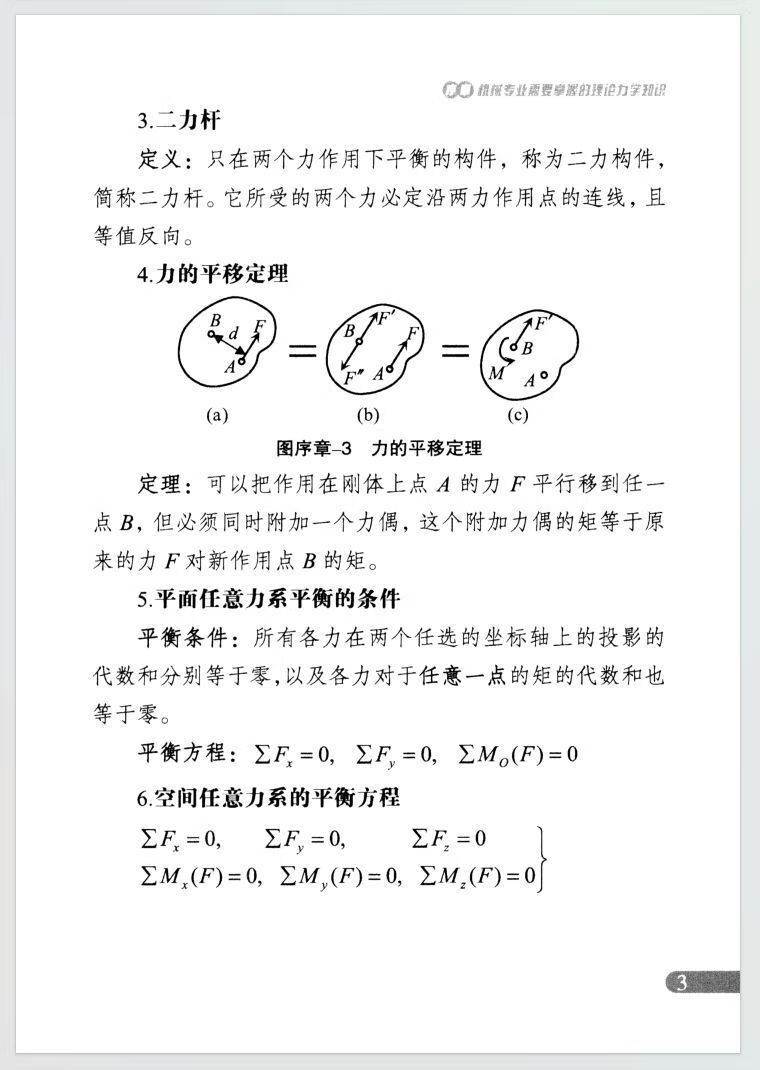 机械专业需要掌握的理论力学知识
3.二力杆
定义：只在两个力作用下平衡的构件，称为二力构件，
简称二力杆。它所受的两个力必定沿两力作用点的连线，且
等值反向。
4.力的平移定理
B d F A
= B F′ F F″ A
= F′ B M A
(a) (b) (c)
图序章–3 力的平移定理
定理：可以把作用在刚体上点 A 的力 F 平行移到任一
点 B，但必须同时附加一个力偶，这个附加力偶的矩等于原
来的力 F 对新作用点 B 的矩。
5.平面任意力系平衡的条件
平衡条件：所有各力在两个任选的坐标轴上的投影的
代数和分别等于零，以及各力对于任意一点的矩的代数和也
等于零。
平衡方程：∑Fₓ = 0, ∑F_y = 0, ∑M_O(F) = 0
6.空间任意力系的平衡方程
∑Fₓ = 0, ∑F_y = 0, ∑F_z = 0
∑Mₓ(F) = 0, ∑M_y(F) = 0, ∑M_z(F) = 0
3